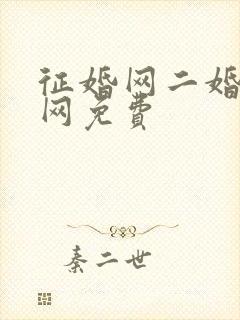 征婚网二婚
网免费
秦二世